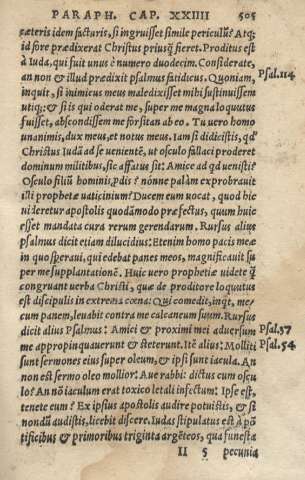 PARAPH. CAP. XXIIII 505
cæteris idem facturis, si ingruisset simile periculũ? Atq;
id fore prædixerat Christus priusq̃ fieret. Proditus est
à Iuda, qui fuit unus è numero duodecim. Considerate,
an non & illud prædixit psalmus fatidicus. Quoniam, Psal.114
inquit, si inimicus meus maledixisset mihi sustinuissem
utiq;: & si is qui oderat me, super me magna loquutus
fuisset, abscondissem me forsitan ab eo. Tu uero homo
unanimis, dux meus, et notus meus. Iam si didicistis, qd'
Christus Iudã ad se uenientẽ, ut osculo fallaci proderet
dominum militibus, sic affatus sit: Amice ad qd uenisti?
Osculo filiũ hominis, ꝓdis? nónne palàm exprobrauit
illi prophetæ uaticinium? Ducem eum uocat, quod hic
uideretur apostolis quodãmodo præfectus, quum huic
esset mandata cura rerum gerendarum. Rursus alius
psalmus dicit etiam dilucidius: Etenim homo pacis meæ
in quo speraui, qui edebat panes meos, magnificauit su
per me supplantationẽ. Huic uero prophetiæ uidete q̃
congruant uerba Christi, quæ de proditore loquutus
est discipulis in extrema cœna: Qui comedit, inqt, me,
cum panem, leuabit contra me calcaneum suum. Rursus
dicit alius Psalmus: Amici & proximi mei aduersum Psal.37
me appropinquauerunt & steterunt. Itẽ alius: Molliti Psal.54
sunt sermones eius super oleum, & ipsi sunt iacula. An
non est sermo oleo mollior: Aue rabbi: dictus cum oscu
lo? An nõ iaculum erat toxico letali infectum: Ipse est,
tenete eum? Ex ipsius apostolis audire potuistis, & si
nondũ audistis, licebit discere. Iudas stipulatus est à põ
tificibus & primoribus triginta argẽteos, qua funesta
II 5 pecunia